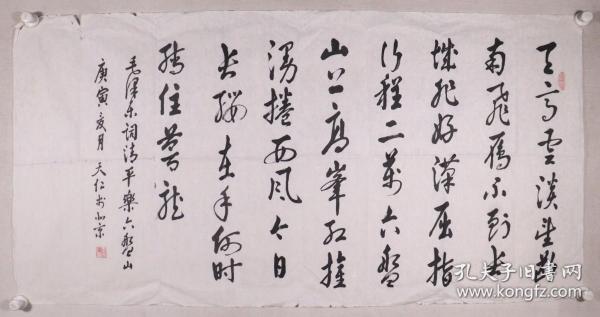 天高云淡望断
南飞雁不到长
城非好汉屈指
行程二万六盘
山上高峰红旗
漫捲西风今日
长缨在手何时
缚住苍龙
毛泽东词清平乐六盘山
庚寅夏月天仁於北京
孔夫子旧书网
www.kongfz.com